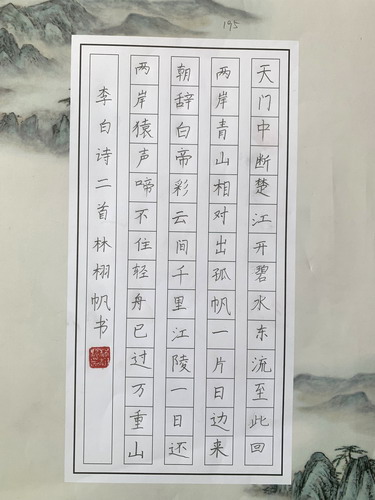 天门中断楚江开碧水东流至此回
两岸青山相对出孤帆一片日边来
朝辞白帝彩云间千里江陵一日还
两岸猿声啼不住轻舟已过万重山
李白诗二首林栩帆书